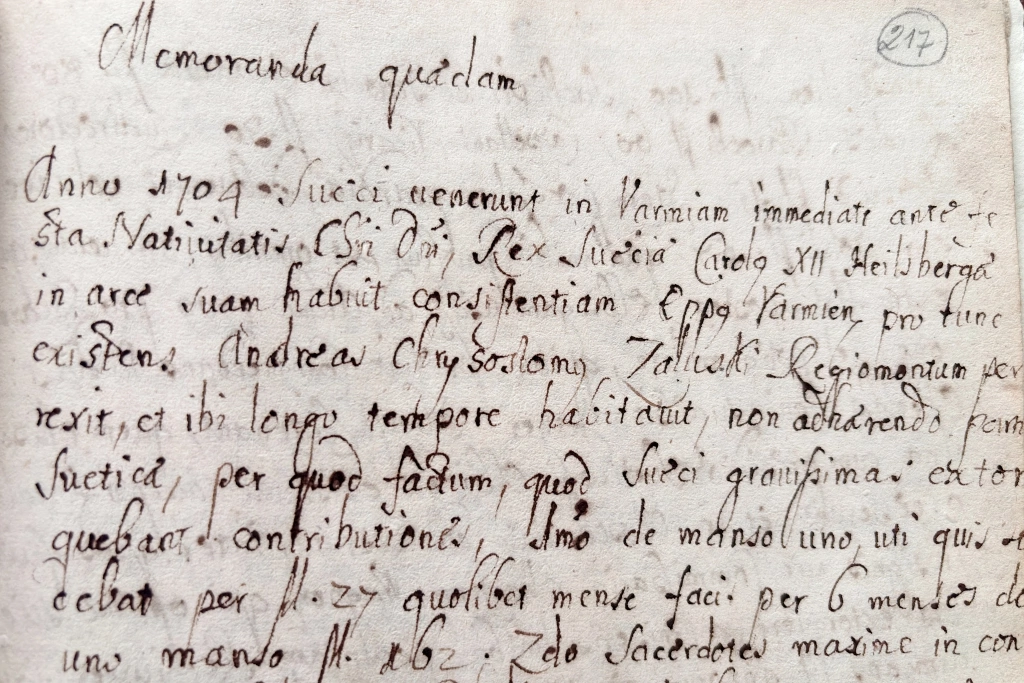 217
Memoranda quædam
Anno 1704 Sueci venerunt in Varmiam immediatè ante fe
sta Nativitatis Chri Dni, Rex Sueciæ Carolq XII Heilsbergæ
in arce suam habuit consistentiam Eppq Varmien pro tunc
existens Andreas Chrysostomq Zaluski Regiomontum per
rexit, et ibi longo tempore habitavit, non adhærendo
Sueticæ, per quod factum, quod Sueci gravissimas extor
quebant contributiones, Imò de manso uno, uti quis
debat per fl. 27 quolibet mense faci. per 6 menses de
uno manso fl. 162. 2do Sacerdotes maxime in con